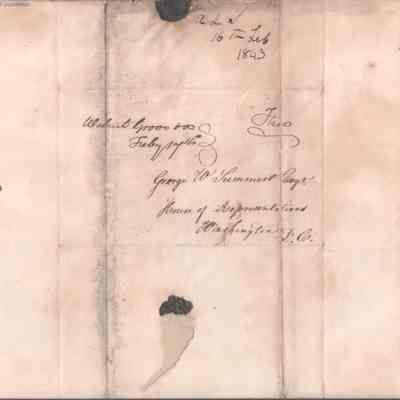 16th Feb
1843
Walnut Grove
Free
Feby
George W Summers Esqr
House of Representatives
Washington
D. C.